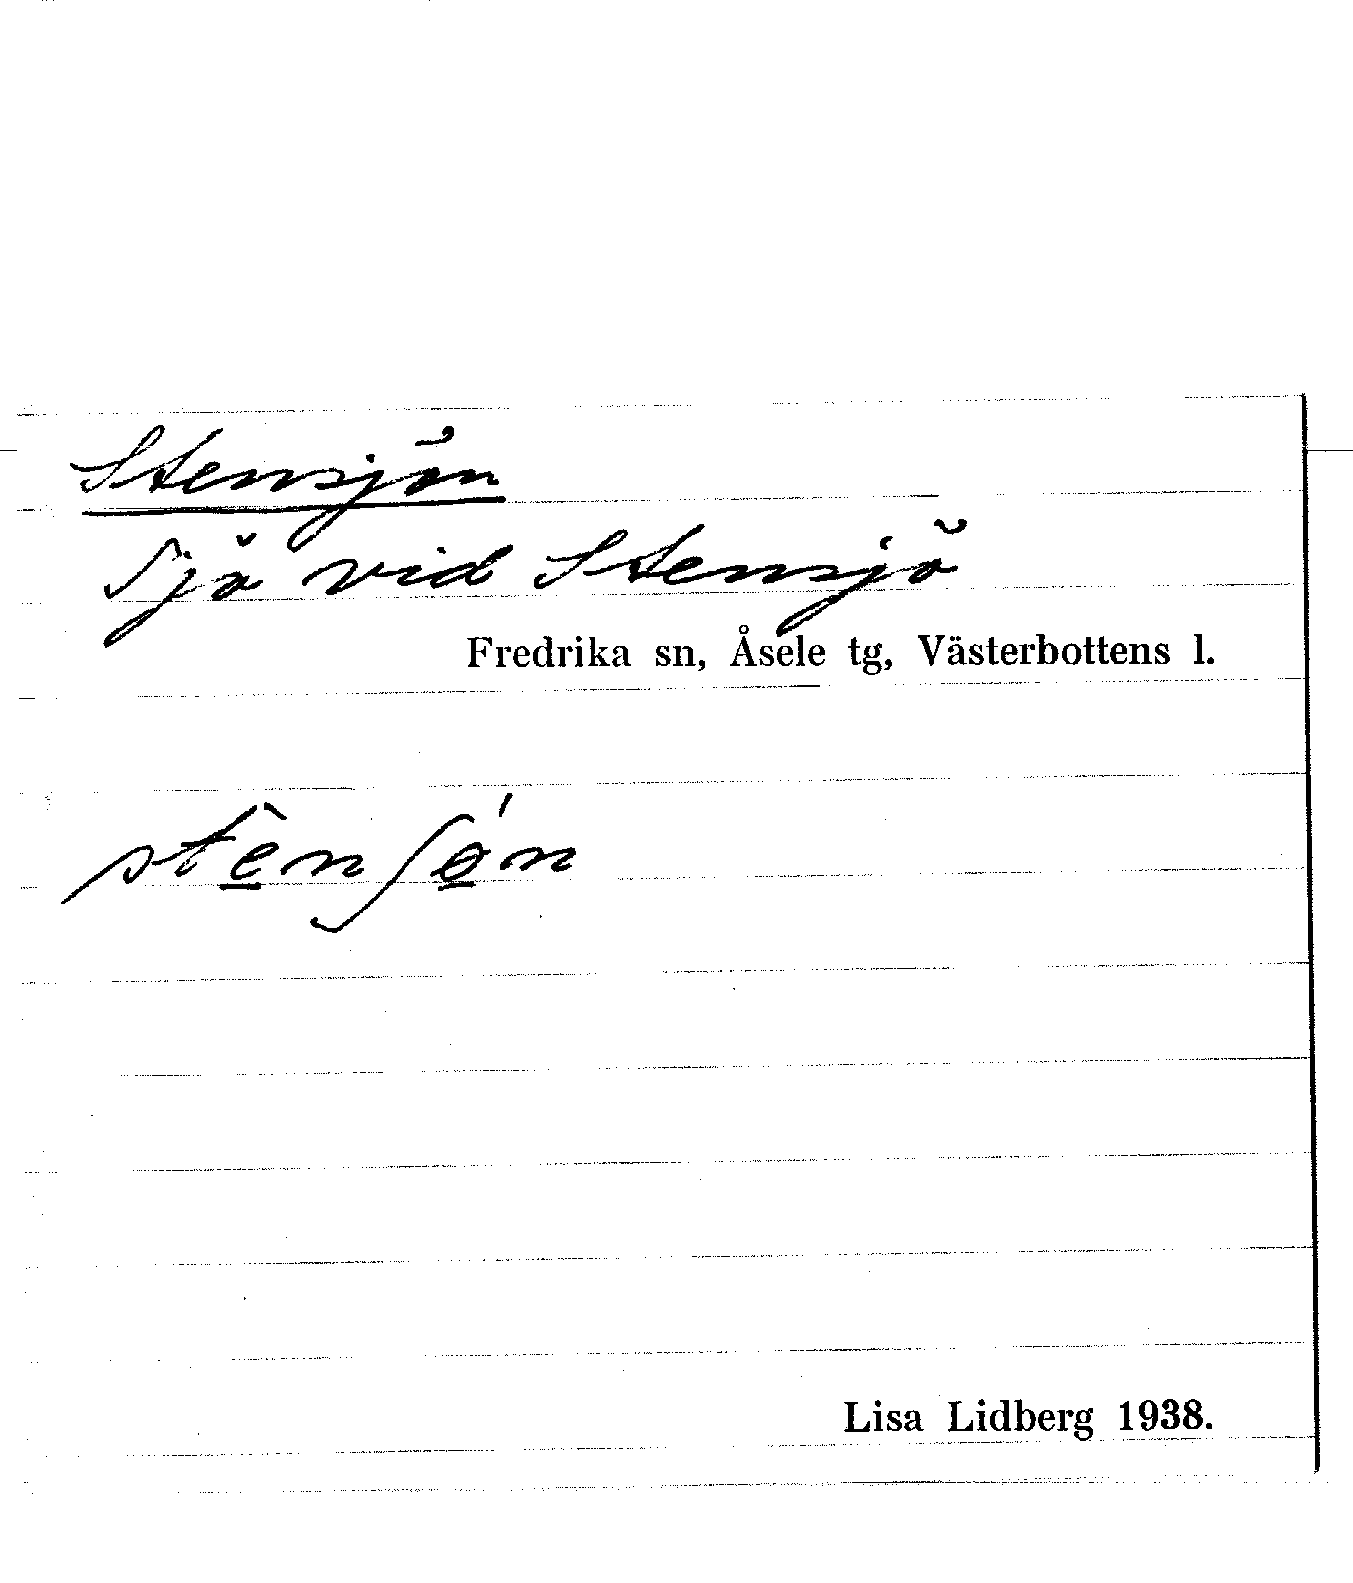 Stensjön
Sjö vid Stensjö
Fredrika sn, Åsele tg, Västerbottens l.
stê̱nʃǿ̱n
Lisa Lidberg 1938.